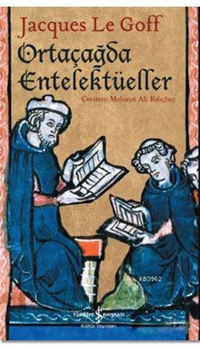 Jacques Le Goff
Ortaçağda
Entelektüeller
Çeviren: Mehmet Ali Kılıçbay
KB3962
TÜRKİYE İŞ BANKASI
Kültür Yayınları